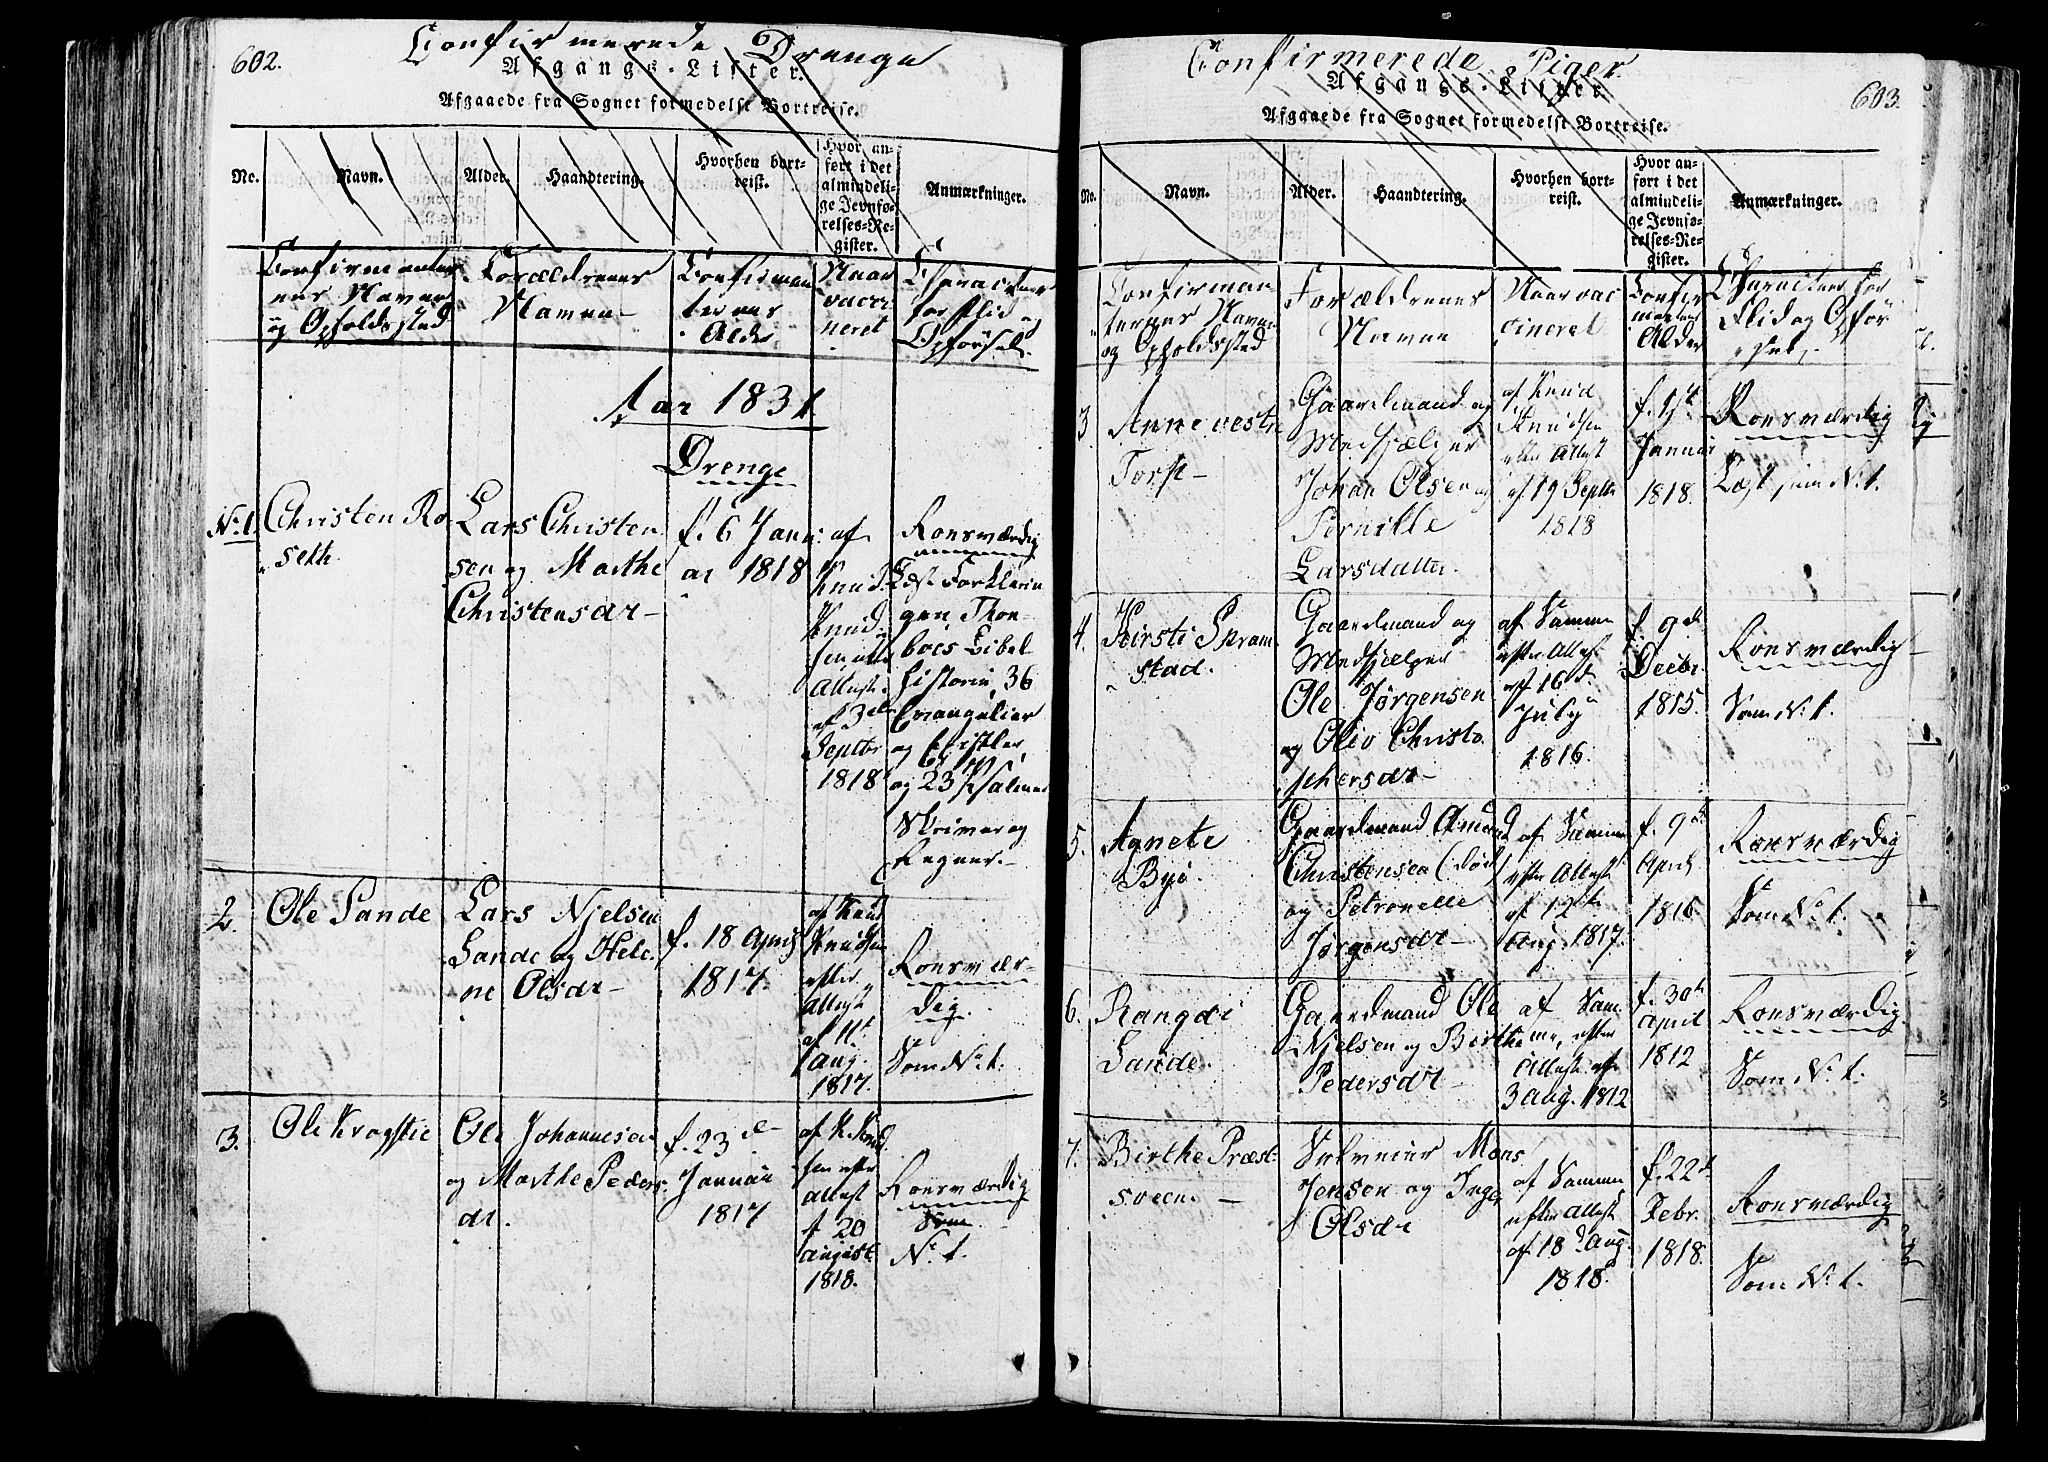 602.
Confirmerede Drenge
Afgangs-Lister.
Afgaaede fra Sognet formedelst Bortreise.
No.
Navn.
Alder.
Haandtering.
Hvorhen bort-
reist.
Hvor an-
ført i det
almindeli-
ge Jevnfø-
relses-Re-
gister.
Anmærkninger.
Confirmanter
nes Navne
og Opholdssted
Forældrenes
Navne
Confirman
ternes
Alder
Naar
vacci
neret
Character
for Flid og
Opførsel.
Aar 1831
Drenge
No 1.
Christen Ro
seth
Lars Christen
sen og Marthe
Christensdr
f. 6 Janu
ar 1818
af
Knud
Knud
sen efter
Attest
af 3de
Septbr
1818
Roesværdig
Læst Forklarin
gen Thon-
boes Bibel
historie, 36
Evangelier
og Epistler
og 23 Psalmer
Skriver og
Regner.
2.
Ole Sande
Lars Njelsen
Sande og Hele
ne Olsdr
f. 18 April
1817.
af Knud
Knudsen
efter
Attest
af 11t
Aug.
1817.
Roesvær-
dig.
Som No 1.
3.
Ole Krogstie
Ole Johannesen
og Marthe Peders
dr.
f. 23de
Januari
1817
af K. Knud
sen efter
Attest
f 20
August
1818.
Roesværdig
Som
No 1.
Confirmerede Piger.
603.
Afgangs-Lister.
Afgaaede fra Sognet formedelst Bortreise.
No.
Navn.
Alder.
Haandtering.
Hvorhen bort-
reist.
Hvor an-
ført i det
almindeli-
ge Jevnfø-
relses-Re-
gister.
Anmærkninger.
Confirman
ternes Navne
og Opholdssted
Forældrenes
Navne
Naar vac
cineret
Confir
Alder
Character for
Flid og Opfør
sel.
3
Anne vestre
Torp
Gaardmand og
Medhjælper
Johan Olsen og
Pernille
Larsdatter.
af Knud
Knudsen
efter Attest
af 19 Septbr
1818
f. 1t
Januar
1818.
Roesværdig
Læst som No 1.
4.
Kirsti Skram
stad.
Gaardmand og
Medhjælper
Ole Jørgensen
og Oliv Christo
phersdr
af Samme
efter Attest
af 16 d.
July
1816.
f. 9d
Decbr.
1815.
Roesværdig
Som No 1.
5.
Agnete
Bye.
Gaardmand Amund
Christensen (død)
og Petronelle
Jørgensdr
af Samme
efter Attest
af 12te
Aug. 1817.
f. 9d
April
1816
Roesværdig
Som No 1.
6.
Rangdi
Sande.
Gaardmand Ole
Njelsen og Birthe
Pedersdr
af Sam
me, efter
Attest af
3 Aug. 1812
f. 30t
April
1812
Roesværdig
Som No 1.
7.
Birthe Præst-
sveen.
Selveier Mons
Jensen og Inge
Olsdr
af Samme
efter Attest
af 18d Aug.
1818.
f. 22d
Febr.
1818.
Roesværdig
Som No 1.